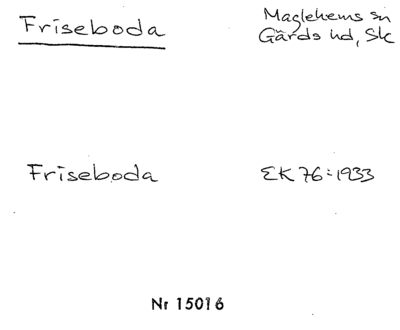 Friseboda
Maglehems sn
Gärds hd, Sk
Friseboda
EK 76:1933
Nr 15016